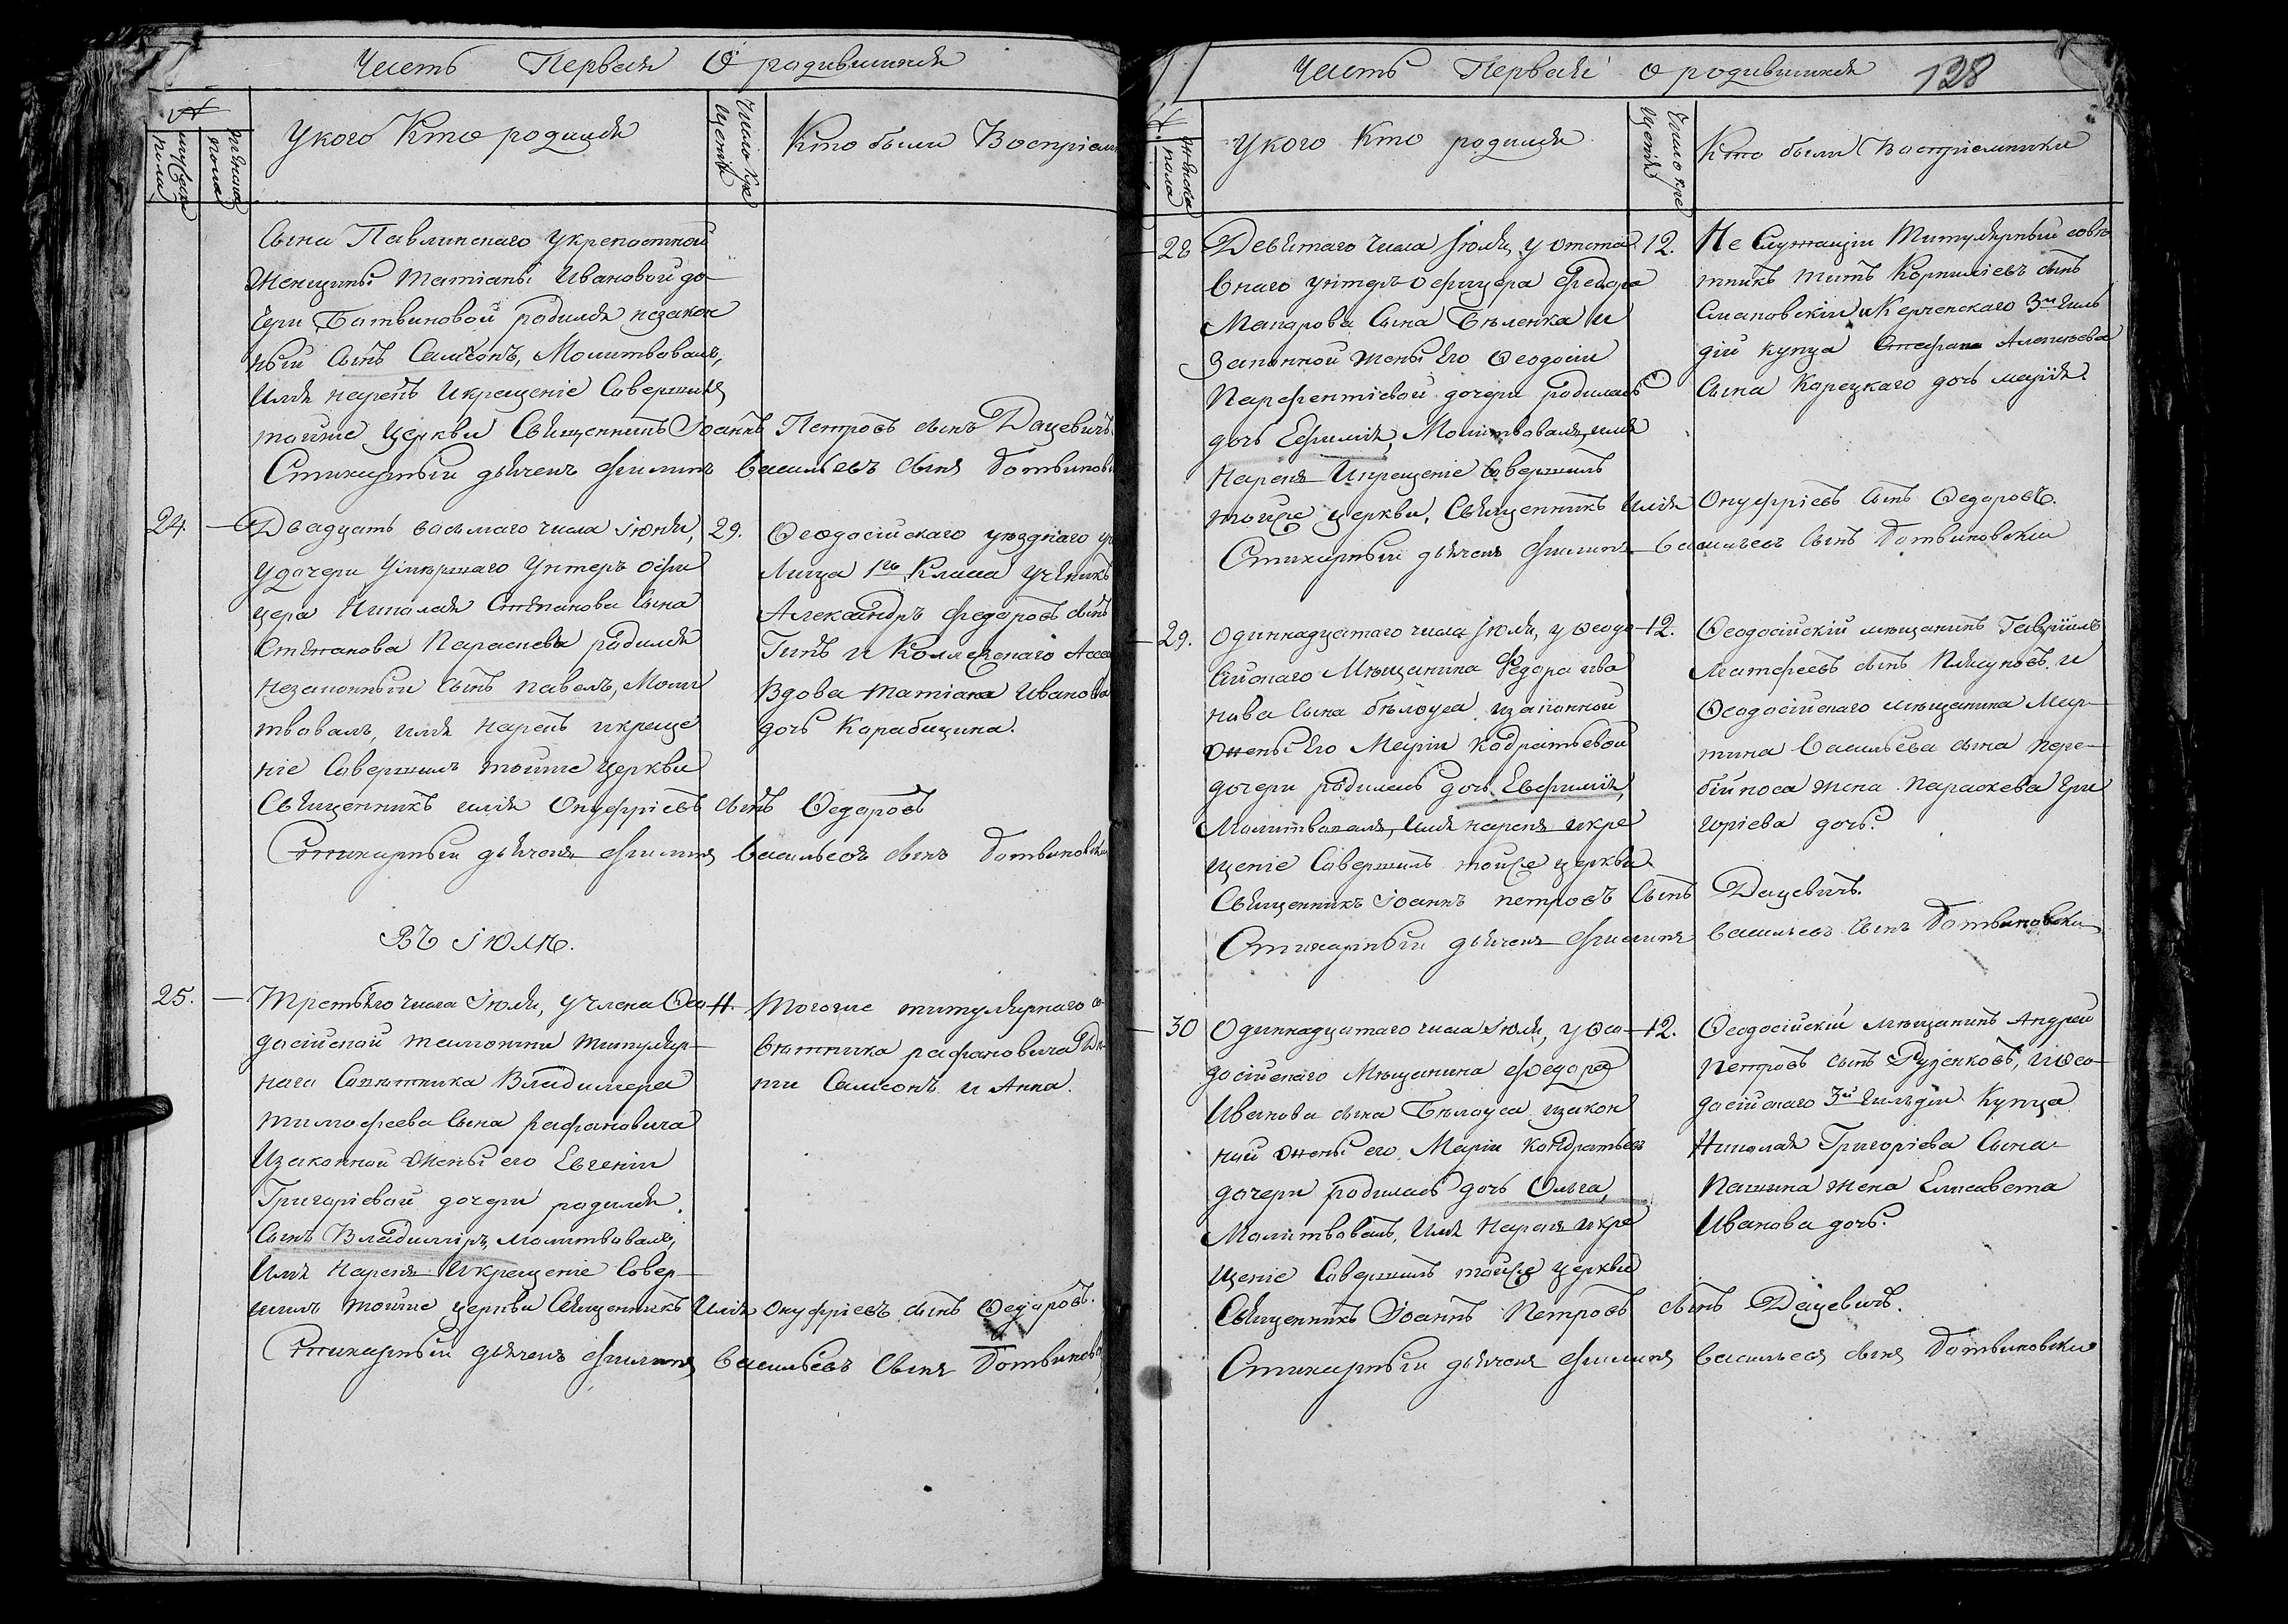 Часть Первая О родившихся
№
мужеска пола
женска пола
У кого Кто родился
Число Кре
щенія
Кто были Воспріем
Сына Павлинскаго Укрепостной
Женщины Татіаны Ивановой до-
чери Ботвиновой родился незакон
ный Сынъ Самсонъ, Молитвовалъ,
Имя нарекъ Икрещеніе Совершилъ
тойже Церкви Священникъ Іоаннъ Петровъ сынъ Дацевичъ.
Стихарный дьячекъ Филиппъ Васильевъ сынъ Ботвиновс
24. Двадцать васьмаго числа Іюня, 29.
Удочери Умершаго Унтеръ офи
цера Николая Степанова Сына
Степанова Параскевы родился
незаконный сынъ Павелъ, Моли
твовалъ, имя нарекъ икреще
ніе Совершилъ тойже церкви
Священникъ илія Онуфріевъ сынъ Федоровъ
Стихарный дьячекъ Филиппъ Васильевъ сынъ Ботвиновски
Феодосійскаго уезднаго учи
лища 1го Класса Ученикъ
Александръ Федоровъ сынъ
Гинъ и Коллежскаго Ассе
Вдова Татіана Иванова
дочь Карабицина.
ВЪ ІЮЛѢ.
25. Третьяго числа Іюля, У члена Фео- 4.
досійской таможни титуляр-
наго Советника Владимера
тимофеева Сына Рафановича
Изаконной жены его Евгеніи
Григоріевой дочери родился
Сынъ Владиміръ, Молитвовалъ,
Имя нарекъ Икрещеніе Совер-
шилъ тойже церкви Священникъ Илія Онуфріевъ сынъ Федоровъ.
Стихарный дьячекъ Филиппъ Васильевъ Сынъ Ботвиновс
Тогоже титулярнаго со-
ветника рафановича Де-
ти Самсонъ и Анна.
Часть Первая о родившихся 128
№
женска пола
У кого Кто родился
Число Кре
щенія
Кто были Воспріемники
28 Девятаго числа Іюля, У отста 12.
внаго унтеръ-офицера Федора
Макарова Сына Беленка И
Законной жены Его Феодосіи
Парфентіевой дочери родилась
дочь Ефимія, Молитвовалъ, имя
Нарекъ Икрещеніе Совершилъ
тойже церкви, Священникъ Илія Онуфріевъ Сынъ Федоровъ.
Стихарный дьячекъ Филиппъ Васильевъ Сынъ Ботвиновскій
Не Служащій Титулярный Сове
тникъ Титъ Корниліевъ сынъ
и Керченскаго 3й Гиль
дій купца Стефана Алексеева
Сына Корецкаго дочь Марія.
29. Одиннадцатаго числа Іюля, у Феодо- 12.
сійскаго Мещанина Федора ива
нова Сына белоуса изаконной
жены Его Маріи Кодратьевой
дочери родилась дочь Евфимія,
Молитвовалъ, Имя нарекъ икре
щеніе Совершилъ тойже церкви
Священникъ Іоаннъ петровъ Сынъ Дацевичъ.
Стихарный дьячекъ Филиппъ Васильевъ Сынъ Ботвиновски
Феодосійскій мещанинъ Гавріилъ
Матфеевъ сынъ Плясуновъ. и
Феодосійскаго мещанина Мар-
тина Васильева сына пере-
бійноса жена параскева Гри
горіева дочь.
30 Одиннадцатаго числа Іюля, у Фео- 12.
досійскаго Мещанина Федора
Иванова сына Белоуса изакон
ной жены его Маріи Кондратьев
дочери родилась дочь Ольга,
Молитвовалъ, Имя нарекъ икре
щеніе Совершилъ тойже церкви
Священникъ Іоаннъ Петровъ сынъ Дацевичъ.
Стихарный дьячекъ Филиппъ Васильевъ сынъ Ботвиновски
Феодосійскій мещанинъ Андрей
петровъ сынъ Руденковъ, ифео-
досійскаго 3й гильдіи Купца
Николая Григоріева Сына
Пашина жена Елисавета
Иванова дочь.